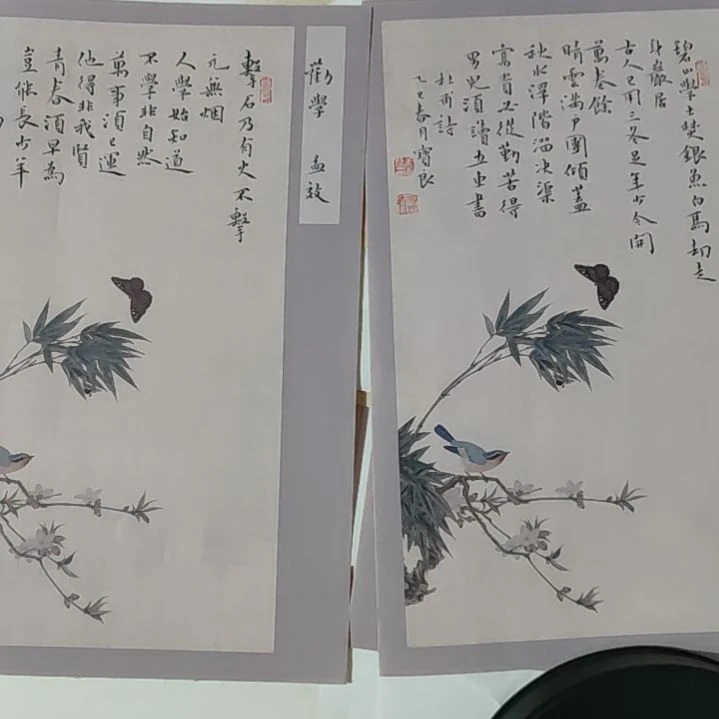 碧山學士焚銀魚白馬却走
身巖居
古人已用三冬足年少今開
萬卷餘
晴雲滿戶團傾蓋
秋水浮階溜決渠
富貴必從勤苦得
男兒須讀五車書
杜甫詩
乙巳春月寶良
勸學 孟效
擊石乃有火不擊
元無烟
人學始知道
不學非自然
萬事須己運
他得非我賢
青春須早為
豈能長少年